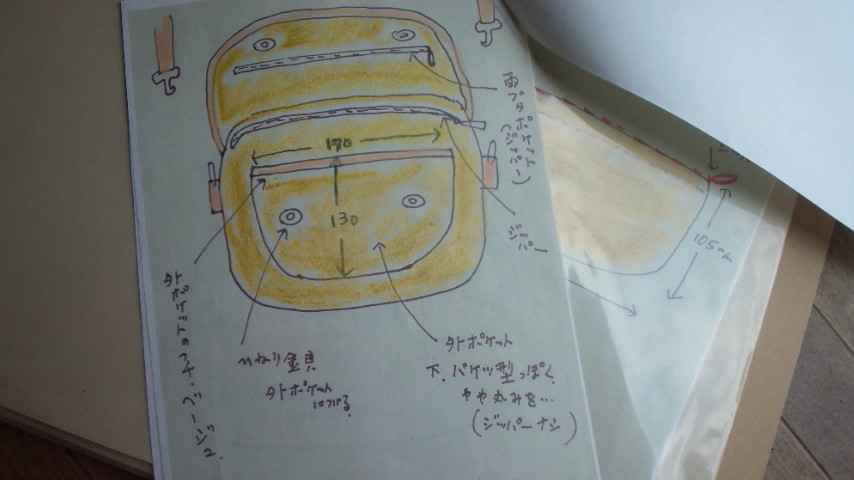 雨ブタポケット
(ジッパー)
170
130
ジッパー
105mm
外ポケット
ひねり金具
外ポケット
につける
外ポケット
下.バケツ型っぽく
やや丸みを…
(ジッパーナシ)